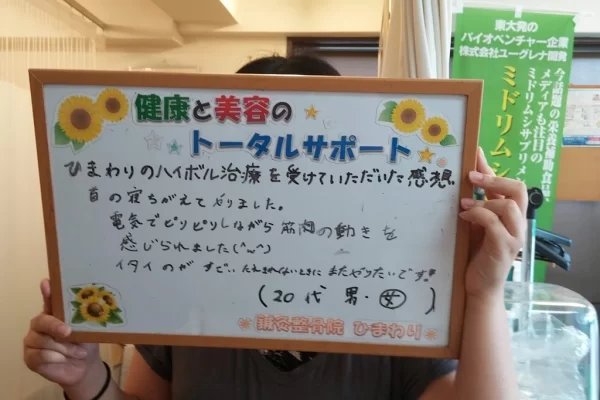 健康と美容の
トータルサポート
ひまわりのハイボル治療を受けていただいた感想
首の寝ちがえでやりました。
電気でピリピリしながら筋肉の動きを
感じられました(^~^)
イタイのがすごい たえきれないときに またやりたいです!!
(20代 男・女)
鍼灸整骨院 ひまわり
東大発の
バイオベンチャー企業
株式会社ユーグレナ開発
今話題の栄養補助食品、
メディアも注目の
ミドリムシサプリメン
ミドリムシ